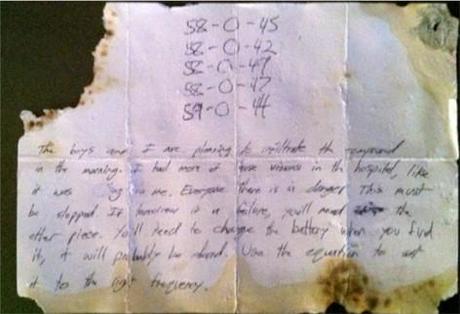 58-0-45
58-0-42
58-0-49
58-0-47
59-0-44
The boys and I are planning to infiltrate the compound
in the morning. I had more of those visions in the hospital, like
it was in me. Everyone there is in danger. This must
be stopped. If tomorrow is a failure, you'll need the
other piece. You'll need to change the battery when you find
it, it will probably be dead. Use the equation to set
it to the right frequency.